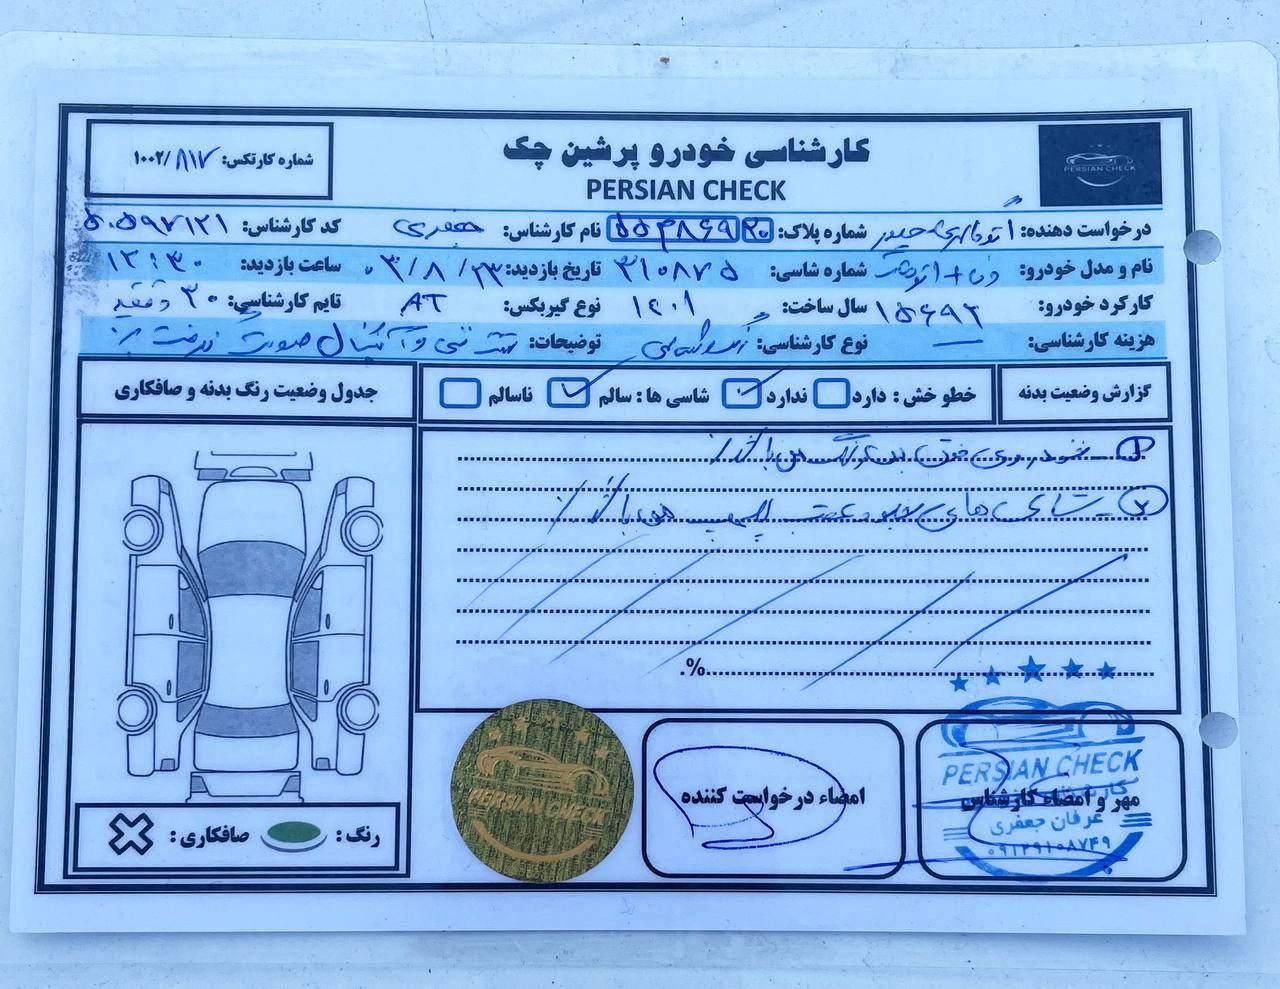 کارشناسی خودرو پرشین چک
PERSIAN CHECK
PERSIAN CHECK
شماره کارتکس: ۱۰۰۲/۸۱۷
درخواست دهنده:
شماره پلاک:
نام کارشناس: جعفری
کد کارشناس: ۵۰۵۹۷۱۲۱
نام و مدل خودرو: دنا + اتومات
شماره شاسی: ۳۱۰۸۷۵
تاریخ بازدید: ۰۳/۸/۲۳
ساعت بازدید: ۱۲:۳۰
کارکرد خودرو: ۱۵۶۹۲
سال ساخت: ۱۴۰۱
نوع گیربکس: AT
تایم کارشناسی: ۳۰ دقیقه
هزینه کارشناسی: —
نوع کارشناسی:
توضیحات: تست فنی و آپشنال صورت نگرفت
گزارش وضعیت بدنه
خطو خش : دارد ندارد شاسی ها : سالم ناسالم
جدول وضعیت رنگ بدنه و صافکاری
۱- خودروی فوق بدون رنگ می باشد.
۲- شاسی های جلو و عقب پلمپ می باشد.
%.
رنگ : صافکاری :
PERSIAN CHECK
امضاء درخواست کننده
مهر و امضاء کارشناس
PERSIAN CHECK
عرفان جعفری
۰۹۱۲۹۱۰۸۷۴۹